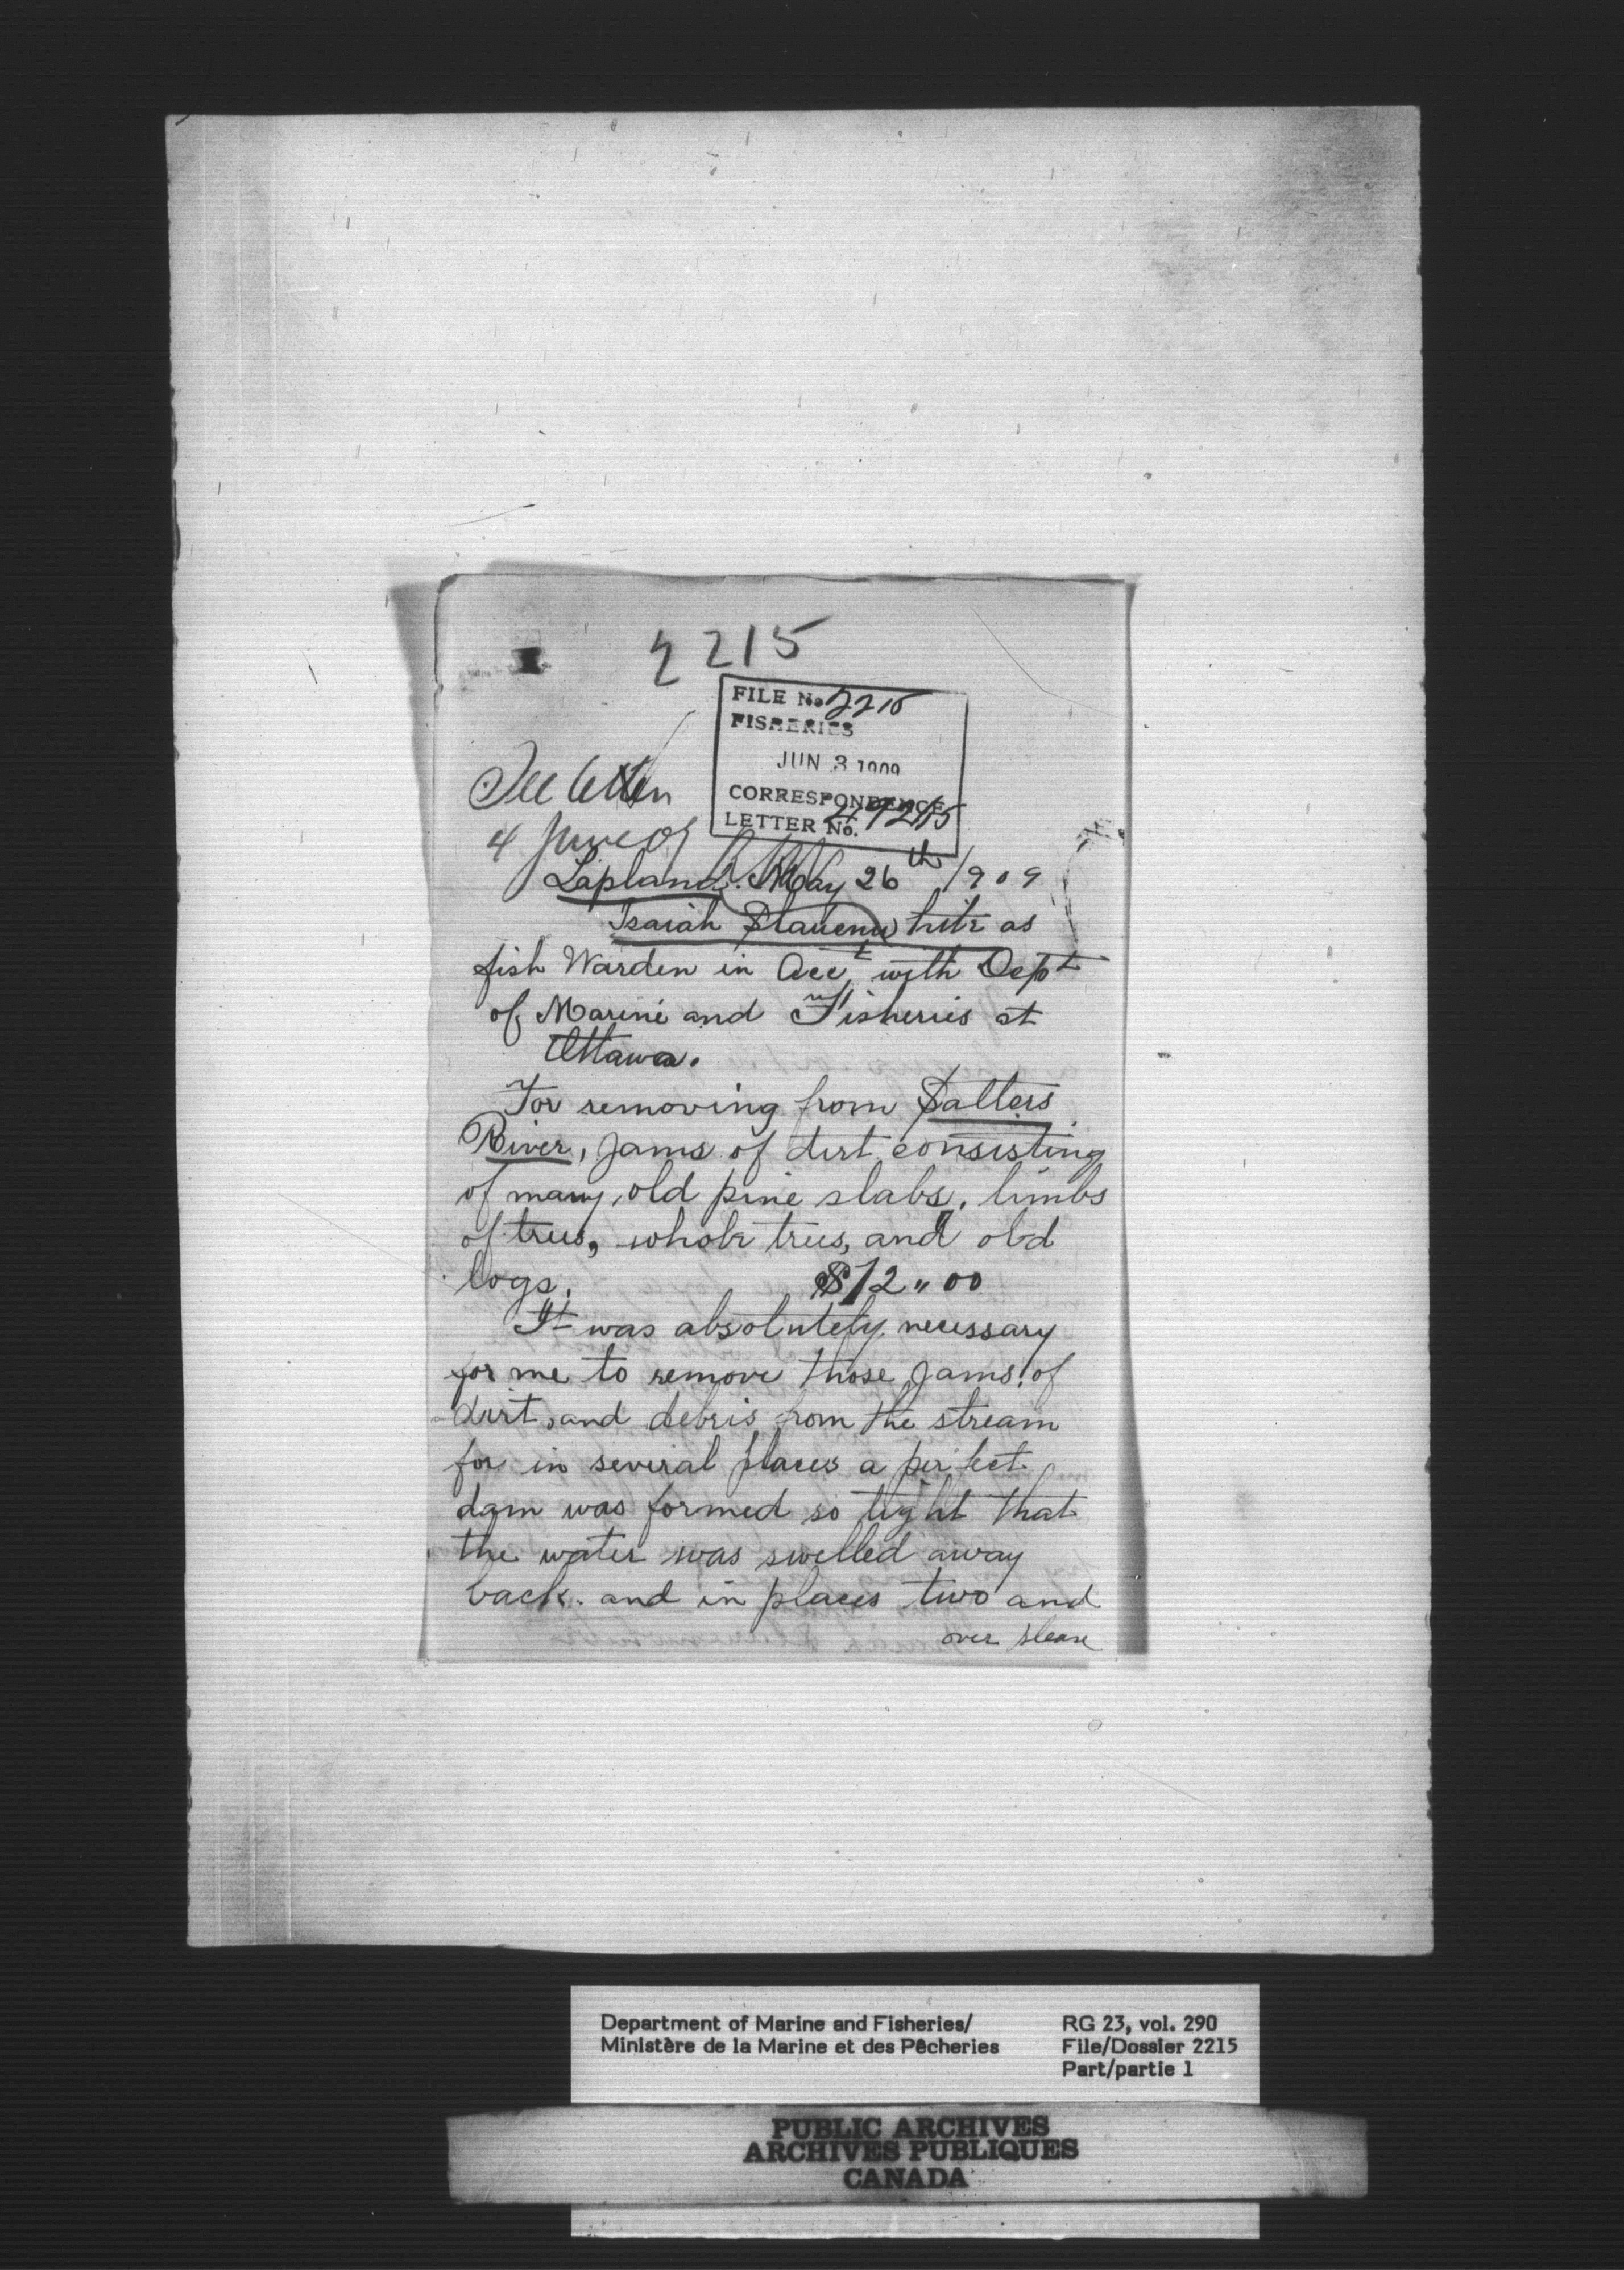 2215
FILE No. 2215
FISHERIES
JUN 3 1909
CORRESPONDENCE
LETTER No. 49215
See letter
4 June 09
Lapland. May 26th 1909
Isaiah Slauenwhite as
fish Warden in Acct with Dept
of Marine and Fisheries at
Ottawa.
For removing from Salters
River, Jams of dirt consisting
of many, old pine slabs, limbs
of trees, whole trees, and old
logs. $12"00
It was absolutely necessary
for me to remove those Jams of
dirt, and debris from the stream
for in several places a perfect
dam was formed so tight that
the water was swelled away
back. and in places two and
over please
Department of Marine and Fisheries/
Ministère de la Marine et des Pêcheries
RG 23, vol. 290
File/Dossier 2215
Part/partie 1
PUBLIC ARCHIVES
ARCHIVES PUBLIQUES
CANADA